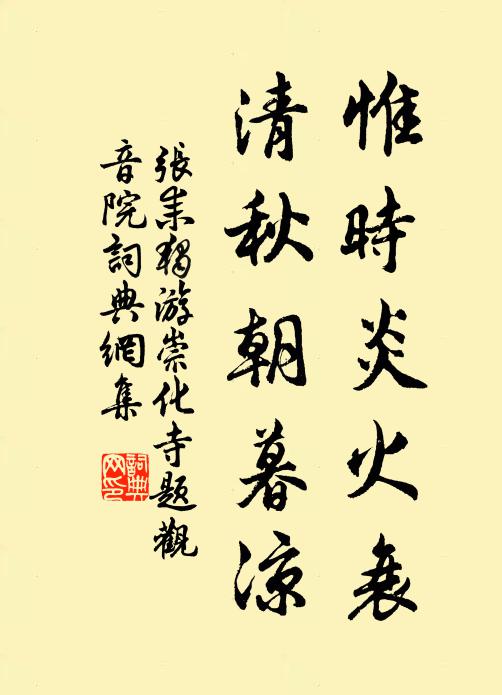 惟時炎火衰
清秋朝暮涼
張耒獨游崇化寺題觀
音院詞典網集
詞典
网印